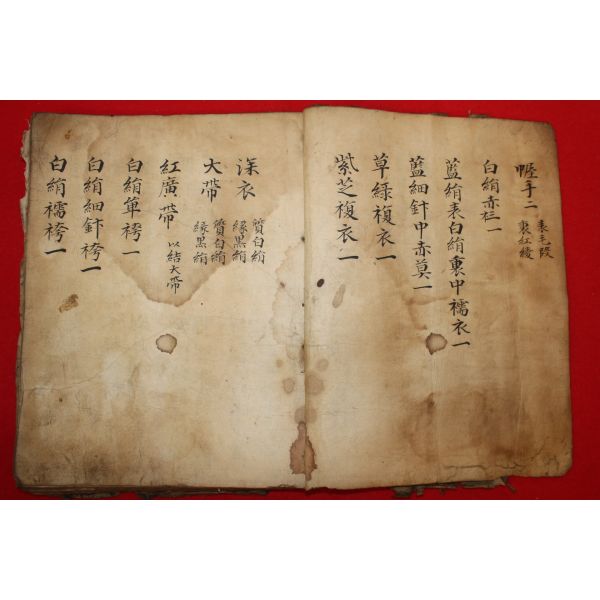 幄手二 表毛段
裏紅綾
白絹赤衫一
藍絹表白絹裏中襦衣一
藍細針中赤莫一
草綠複衣一
紫芝複衣一
深衣 質白絹
緣黑絹
大帶 質白絹
緣黑絹
紅廣帶 以結大帶
白絹單袴一
白絹細針袴一
白絹襦袴一